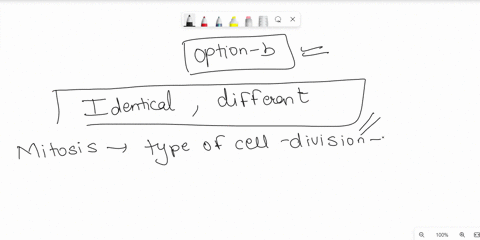 option-b
Identical, different
Mitosis → type of cell-division-.
100%